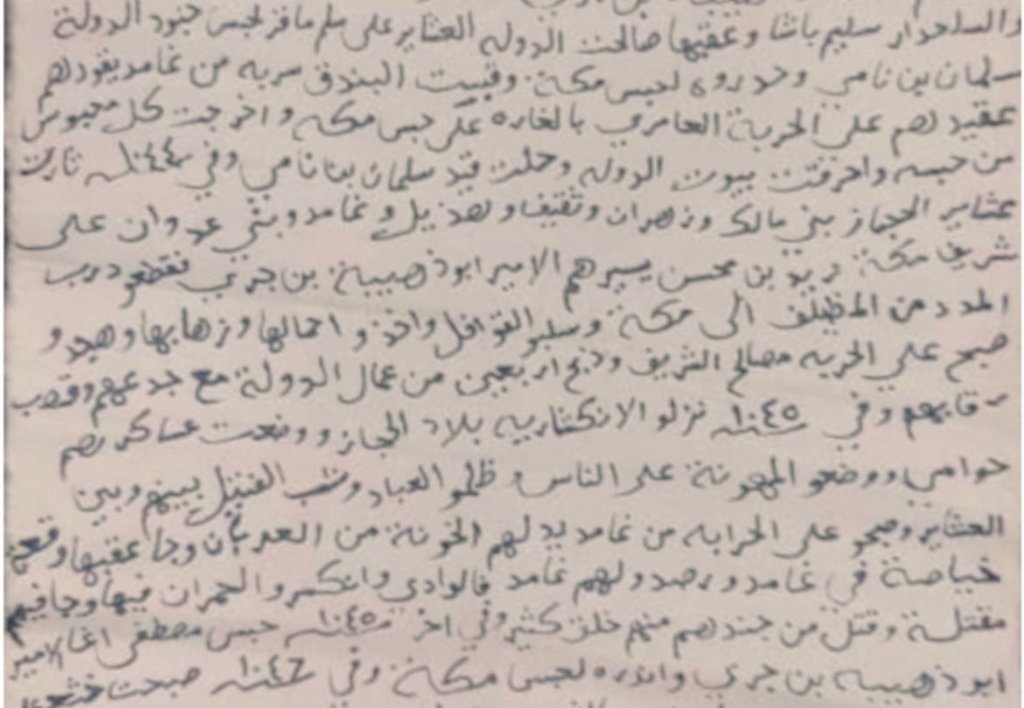 والسلحدار سليم باشا وعقبها صالحت الدوله العشاير على سلم مافز لحبس جنود الدولة
سلمان بن نامي وحدروه لحبس مكة وقبيت البندق سربه من غامد يقودهم
عقيد لهم على الحربة العامري بالغاره على حبس مكه واخرجت كل محبوس
من حبسه واحرقت بيوت الدوله وحلت قيد سلمان بن نامي وفي سنة ١٠٤٤ ثارت
عشاير الحجاز بني مالك وزهران وثقيف وهذيل وغامد وبني عدوان على
شريف مكة زيد بن محسن يسيرهم الامير ابوذهيبة بن جري فقطعو درب
المدد من المظيلف الى مكة وسلبو القوافل واخذو احمالها وزهابها وهجدو
صبح على الحربه مصالح الشريف وذبح اربعين من عمال الدولة مع جدعهم وقصب
رقابهم وفي سنة ١٠٤٥ نزلو الانكشاريه بلاد الحجاز ووضعت عساكرهم
حوامي ووضعو المهونة على الناس وظلمو العباد وشب الفتيل بينهم وبين
العشاير وصبحو على الحرابه من غامد يدلهم الخونة من العدبان وجا عقبها وقعة
خياصة في غامد ورصدو لهم غامد فالوادي وانكسرو الحمران فيها وجا فيهم
مقتلة وقتل من جندهم منهم خلق كثير وفي اخر سنة ١٠٤٥ حبس مصطفى اغا الامير
ابوذهيبه بن جري واندره لحبس مكة وفي سنة ١٠٤٦ صبحت